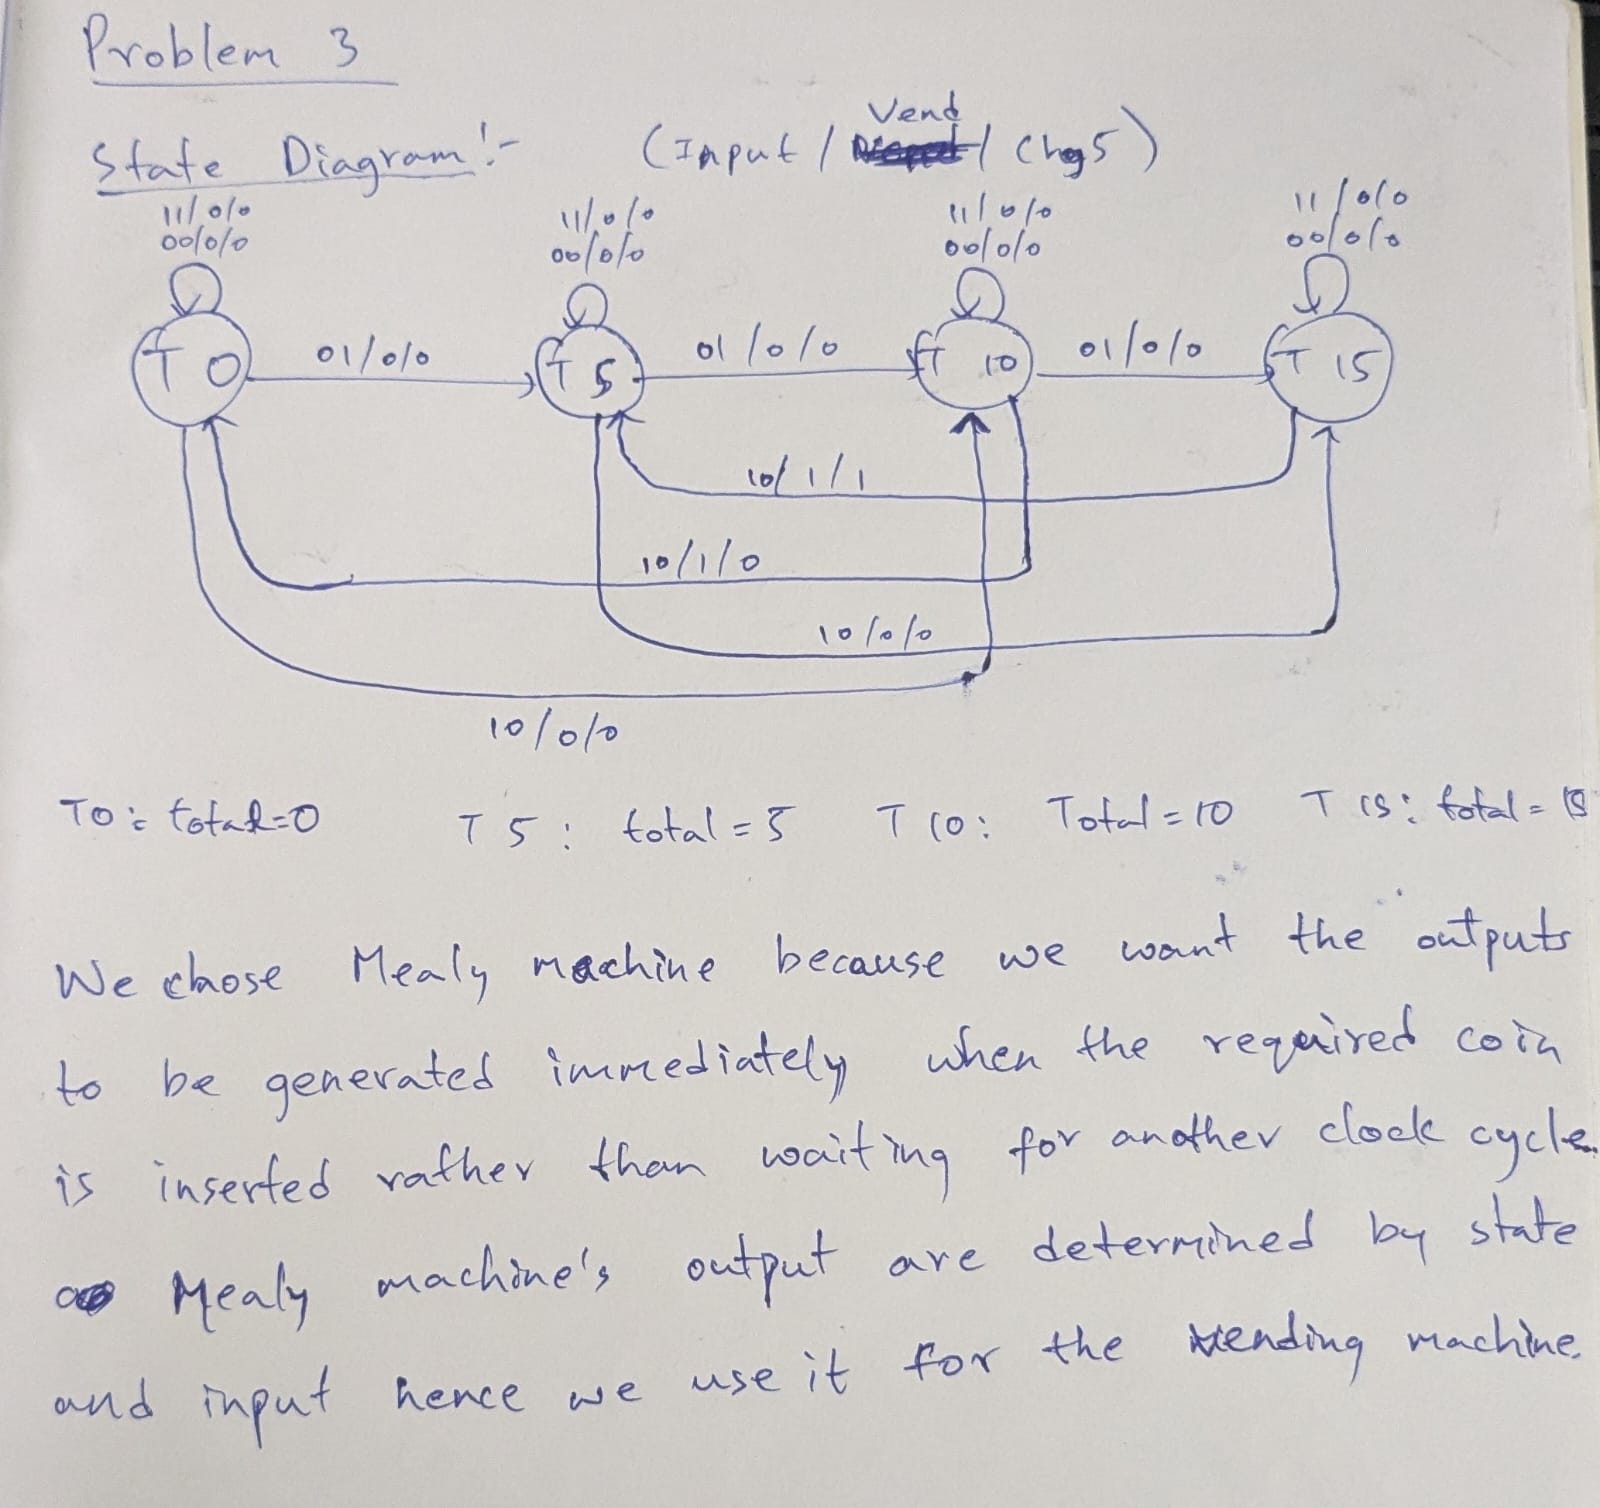 Problem 3
Vend
State Diagram:- (Input / / Chg5)
11/0/0 11/0/0 11/0/0 11/0/0
00/0/0 00/0/0 00/0/0 00/0/0
T0 01/0/0 T5 01/0/0 T10 01/0/0 T15
10/1/1
10/1/0
10/0/0
10/0/0
T0: total=0 T5: total=5 T10: Total=10 T15: total=15
We chose Mealy machine because we want the outputs
to be generated immediately when the required coin
is inserted rather than waiting for another clock cycle.
Mealy machine's output are determined by state
and input hence we use it for the vending machine.